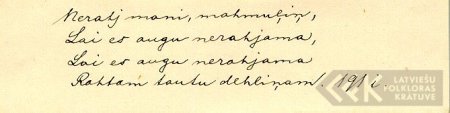 Neratj mani, mahmuliņ,
Lai es augu nerahjama,
Lai es augu nerahjama
Rahtam tautu dehliņam. 191 i.
LATVIEŠU
FOLKLORAS
KRĀTUVE